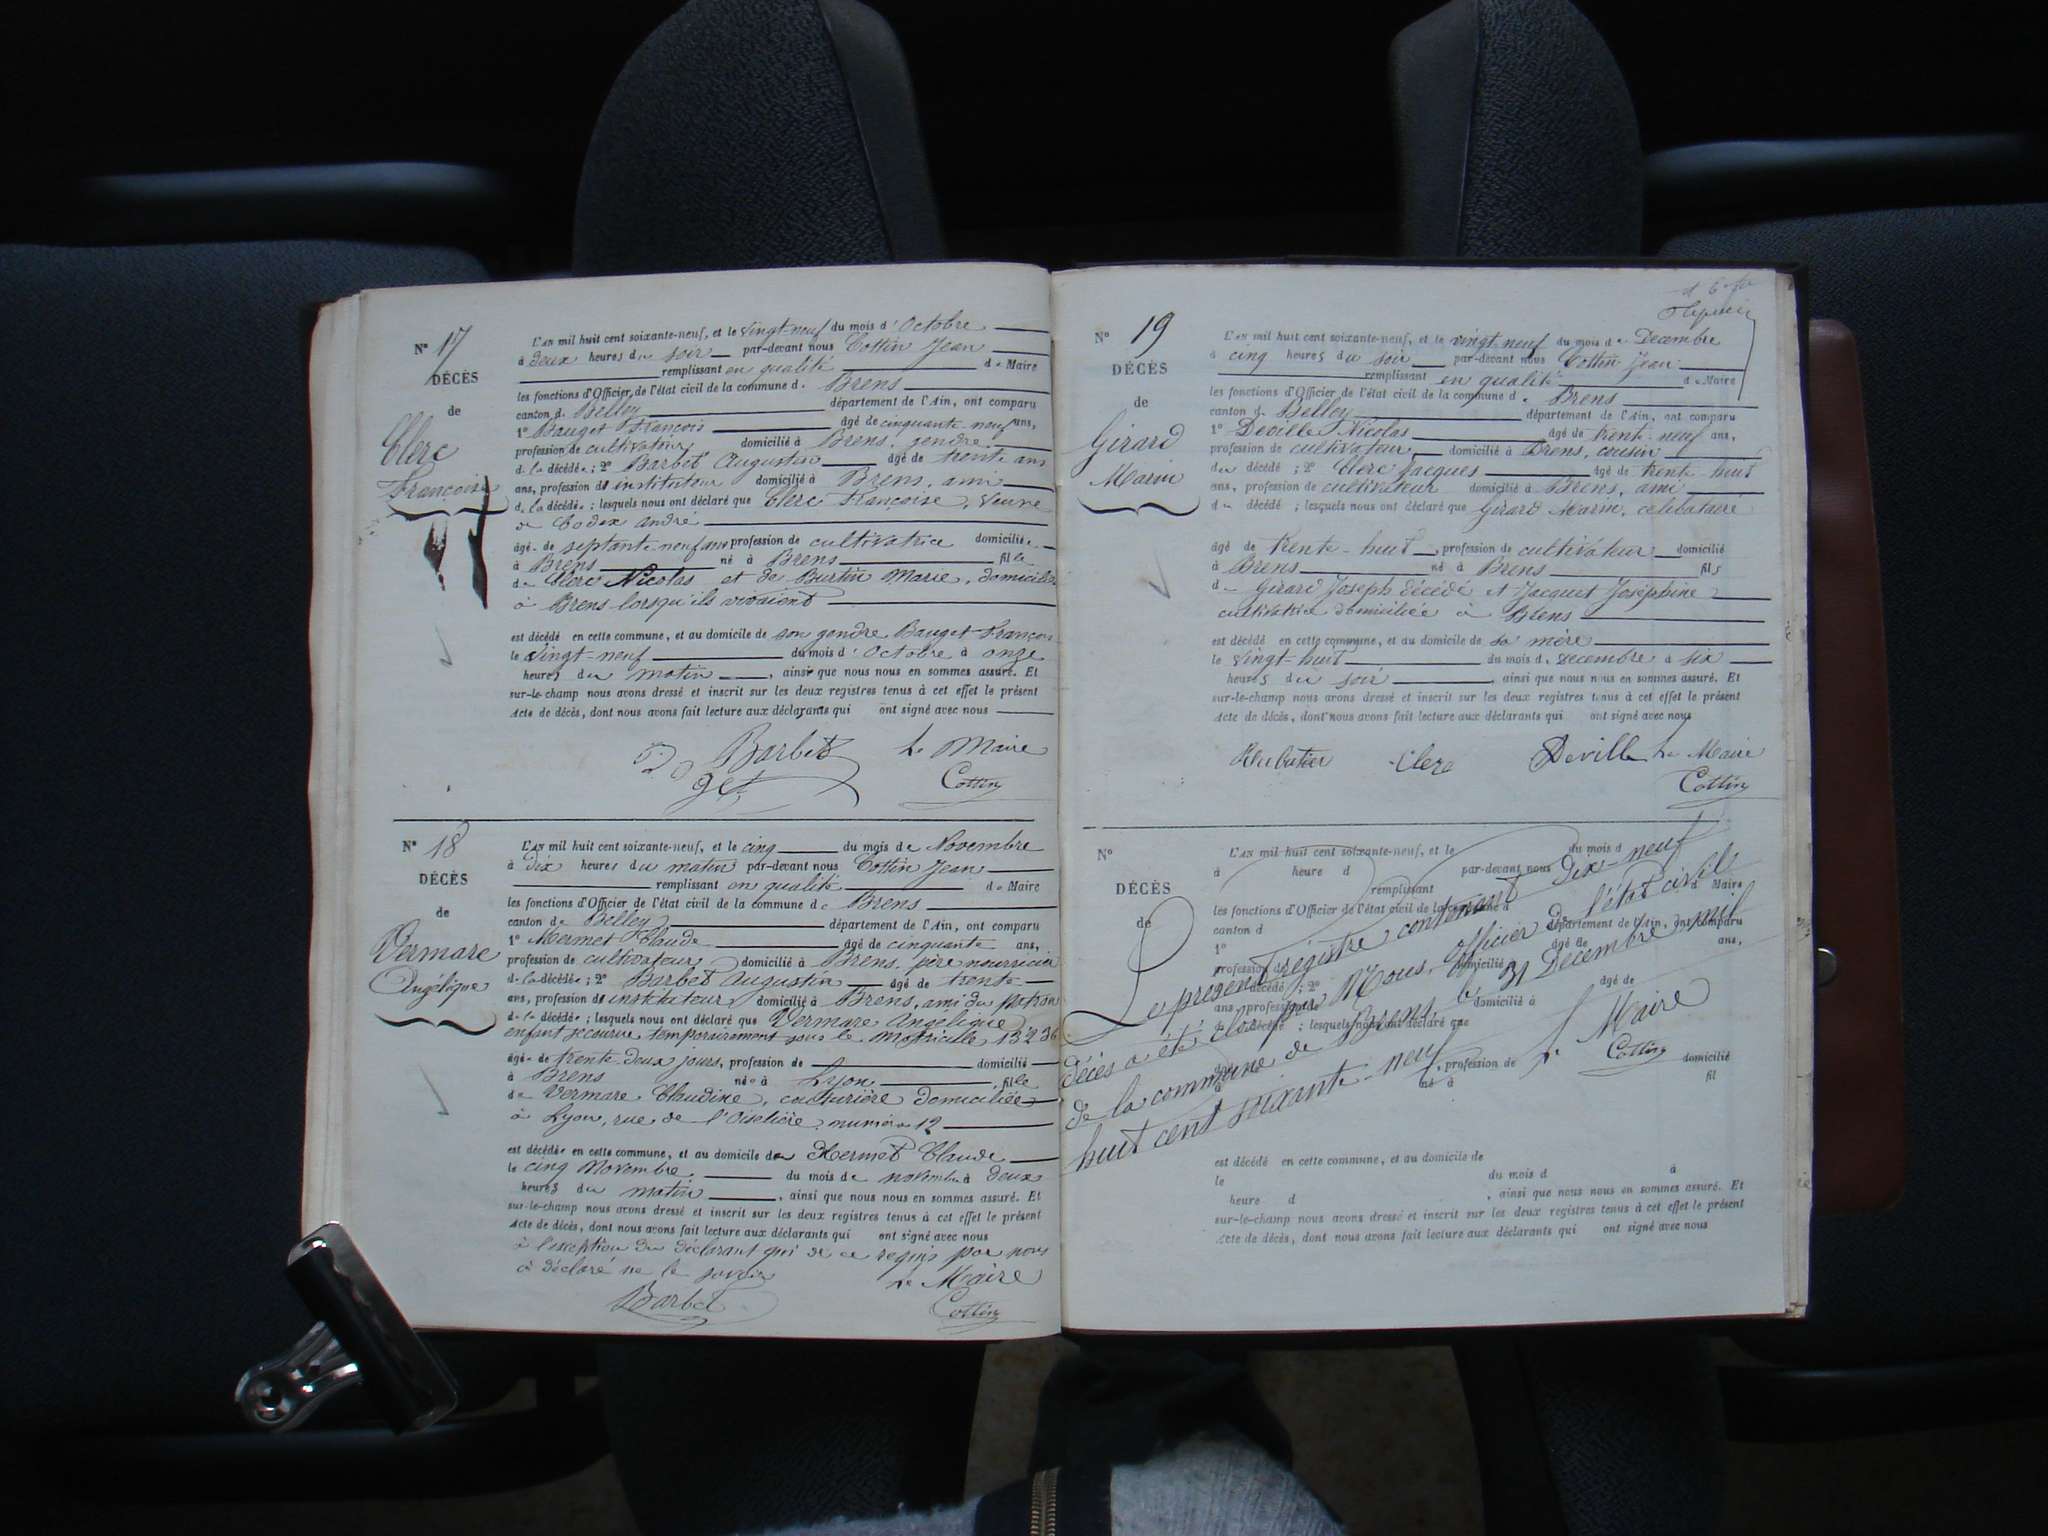 N° 17
DÉCÈS
de
Clerc
Françoise
L'AN mil huit cent soixante-neuf, et le vingt-neuf du mois d'Octobre
à deux heures du soir par-devant nous Cottin Jean
remplissant en qualité de Maire
les fonctions d'Officier de l'état civil de la commune d. Brens
canton d. Belley département de l'Ain, ont comparu
1° Bauget François âgé de cinquante neuf ans,
profession de cultivateur domicilié à Brens, gendre
d. la décédée ; 2° Barbet Augustin âgé de trente ans
ans, profession d'instituteur domicilié à Brens, ami
d. la décédée ; lesquels nous ont déclaré que Clerc Françoise, veuve
de Codex andré
âgée de septante-neuf ans profession de cultivatrice domiciliée
à Brens né à Brens fille
de Clerc Nicolas et de Burtin Marie, domiciliés
à Brens lorsqu'ils vivaient
est décédé en cette commune, et au domicile de son gendre Bauget François
le vingt-neuf du mois d'Octobre à onze
heures du matin, ainsi que nous nous en sommes assuré. Et
sur-le-champ nous avons dressé et inscrit sur les deux registres tenus à cet effet le présent
Acte de décès, dont nous avons fait lecture aux déclarants qui ont signé avec nous
Barbet Le Maire
Cottin
N° 18
DÉCÈS
de
Vermare
Angélique
L'AN mil huit cent soixante-neuf, et le cinq du mois de Novembre
à dix heures du matin par-devant nous Cottin Jean
remplissant en qualité de Maire
les fonctions d'Officier de l'état civil de la commune de Brens
canton de Belley département de l'Ain, ont comparu
1° Mermet Claude âgé de cinquante ans,
profession de cultivateur domicilié à Brens, père nourricier
de la décédée ; 2° Barbet Augustin âgé de trente
ans, profession d'instituteur domicilié à Brens, ami du patron
de la décédée ; lesquels nous ont déclaré que Vermare Angélique
enfant secourue temporairement sous le Matricule 13236
âgée de trente deux jours, profession de domicilié
à Brens née à Lyon, fille
de Vermare Claudine, couturière domiciliée
à Lyon, rue de l'Oiselière numéro 12
est décédée en cette commune, et au domicile du Mermet Claude
le cinq Novembre du mois de novembre à deux
heures du matin, ainsi que nous nous en sommes assuré. Et
sur-le-champ nous avons dressé et inscrit sur les deux registres tenus à cet effet le présent
Acte de décès, dont nous avons fait lecture aux déclarants qui ont signé avec nous
à l'exception du déclarant qui de ce requis par nous
a déclaré ne le savoir Le Maire
Barbet Cottin
N° 19
DÉCÈS
de
Girard
Marin
L'AN mil huit cent soixante-neuf, et le vingt neuf du mois de Decembre
à cinq heures du soir par-devant nous Cottin Jean
remplissant en qualité de Maire
les fonctions d'Officier de l'état civil de la commune d. Brens
canton d. Belley département de l'Ain, ont comparu
1° Deville Nicolas âgé de trente-neuf ans,
profession de cultivateur domicilié à Brens, cousin
du décédé ; 2° Clerc Jacques âgé de trente huit
ans, profession de cultivateur domicilié à Brens, ami
du décédé ; lesquels nous ont déclaré que Girard Marin, célibataire
âgé de trente-huit, profession de cultivateur domicilié
à Brens né à Brens fils
d. Girard Joseph décédé et Jacquet Joséphine
cultivatrice domiciliée à Brens
est décédé en cette commune, et au domicile de sa mère
le vingt-huit du mois d. Decembre à six
heures du soir, ainsi que nous nous en sommes assuré. Et
sur-le-champ nous avons dressé et inscrit sur les deux registres tenus à cet effet le présent
Acte de décès, dont nous avons fait lecture aux déclarants qui ont signé avec nous
Clerc Deville Le Maire
Cottin
N°
DÉCÈS
de
L'AN mil huit cent soixante-neuf, et le du mois d
à heure d par-devant nous
remplissant d Maire
les fonctions d'Officier de l'état civil de la commune d
canton d département de l'Ain, ont comparu
1° âgé de ans,
profession de domicilié à
décédé ; 2° âgé de
ans, profession d domicilié à
d décédé ; lesquels nous ont déclaré que
, profession de domicilié
à né à fil
Le présent régistre contenant Dix-neuf
décès a été clos par Nous, Officier de l'état civil
de la commune de Brens, le 31 Decembre mil
huit cent soixante-neuf Le Maire
Cottin
est décédé en cette commune, et au domicile de
le du mois d à
heure d , ainsi que nous nous en sommes assuré. Et
sur-le-champ nous avons dressé et inscrit sur les deux registres tenus à cet effet le présent
Acte de décès, dont nous avons fait lecture aux déclarants qui ont signé avec nous